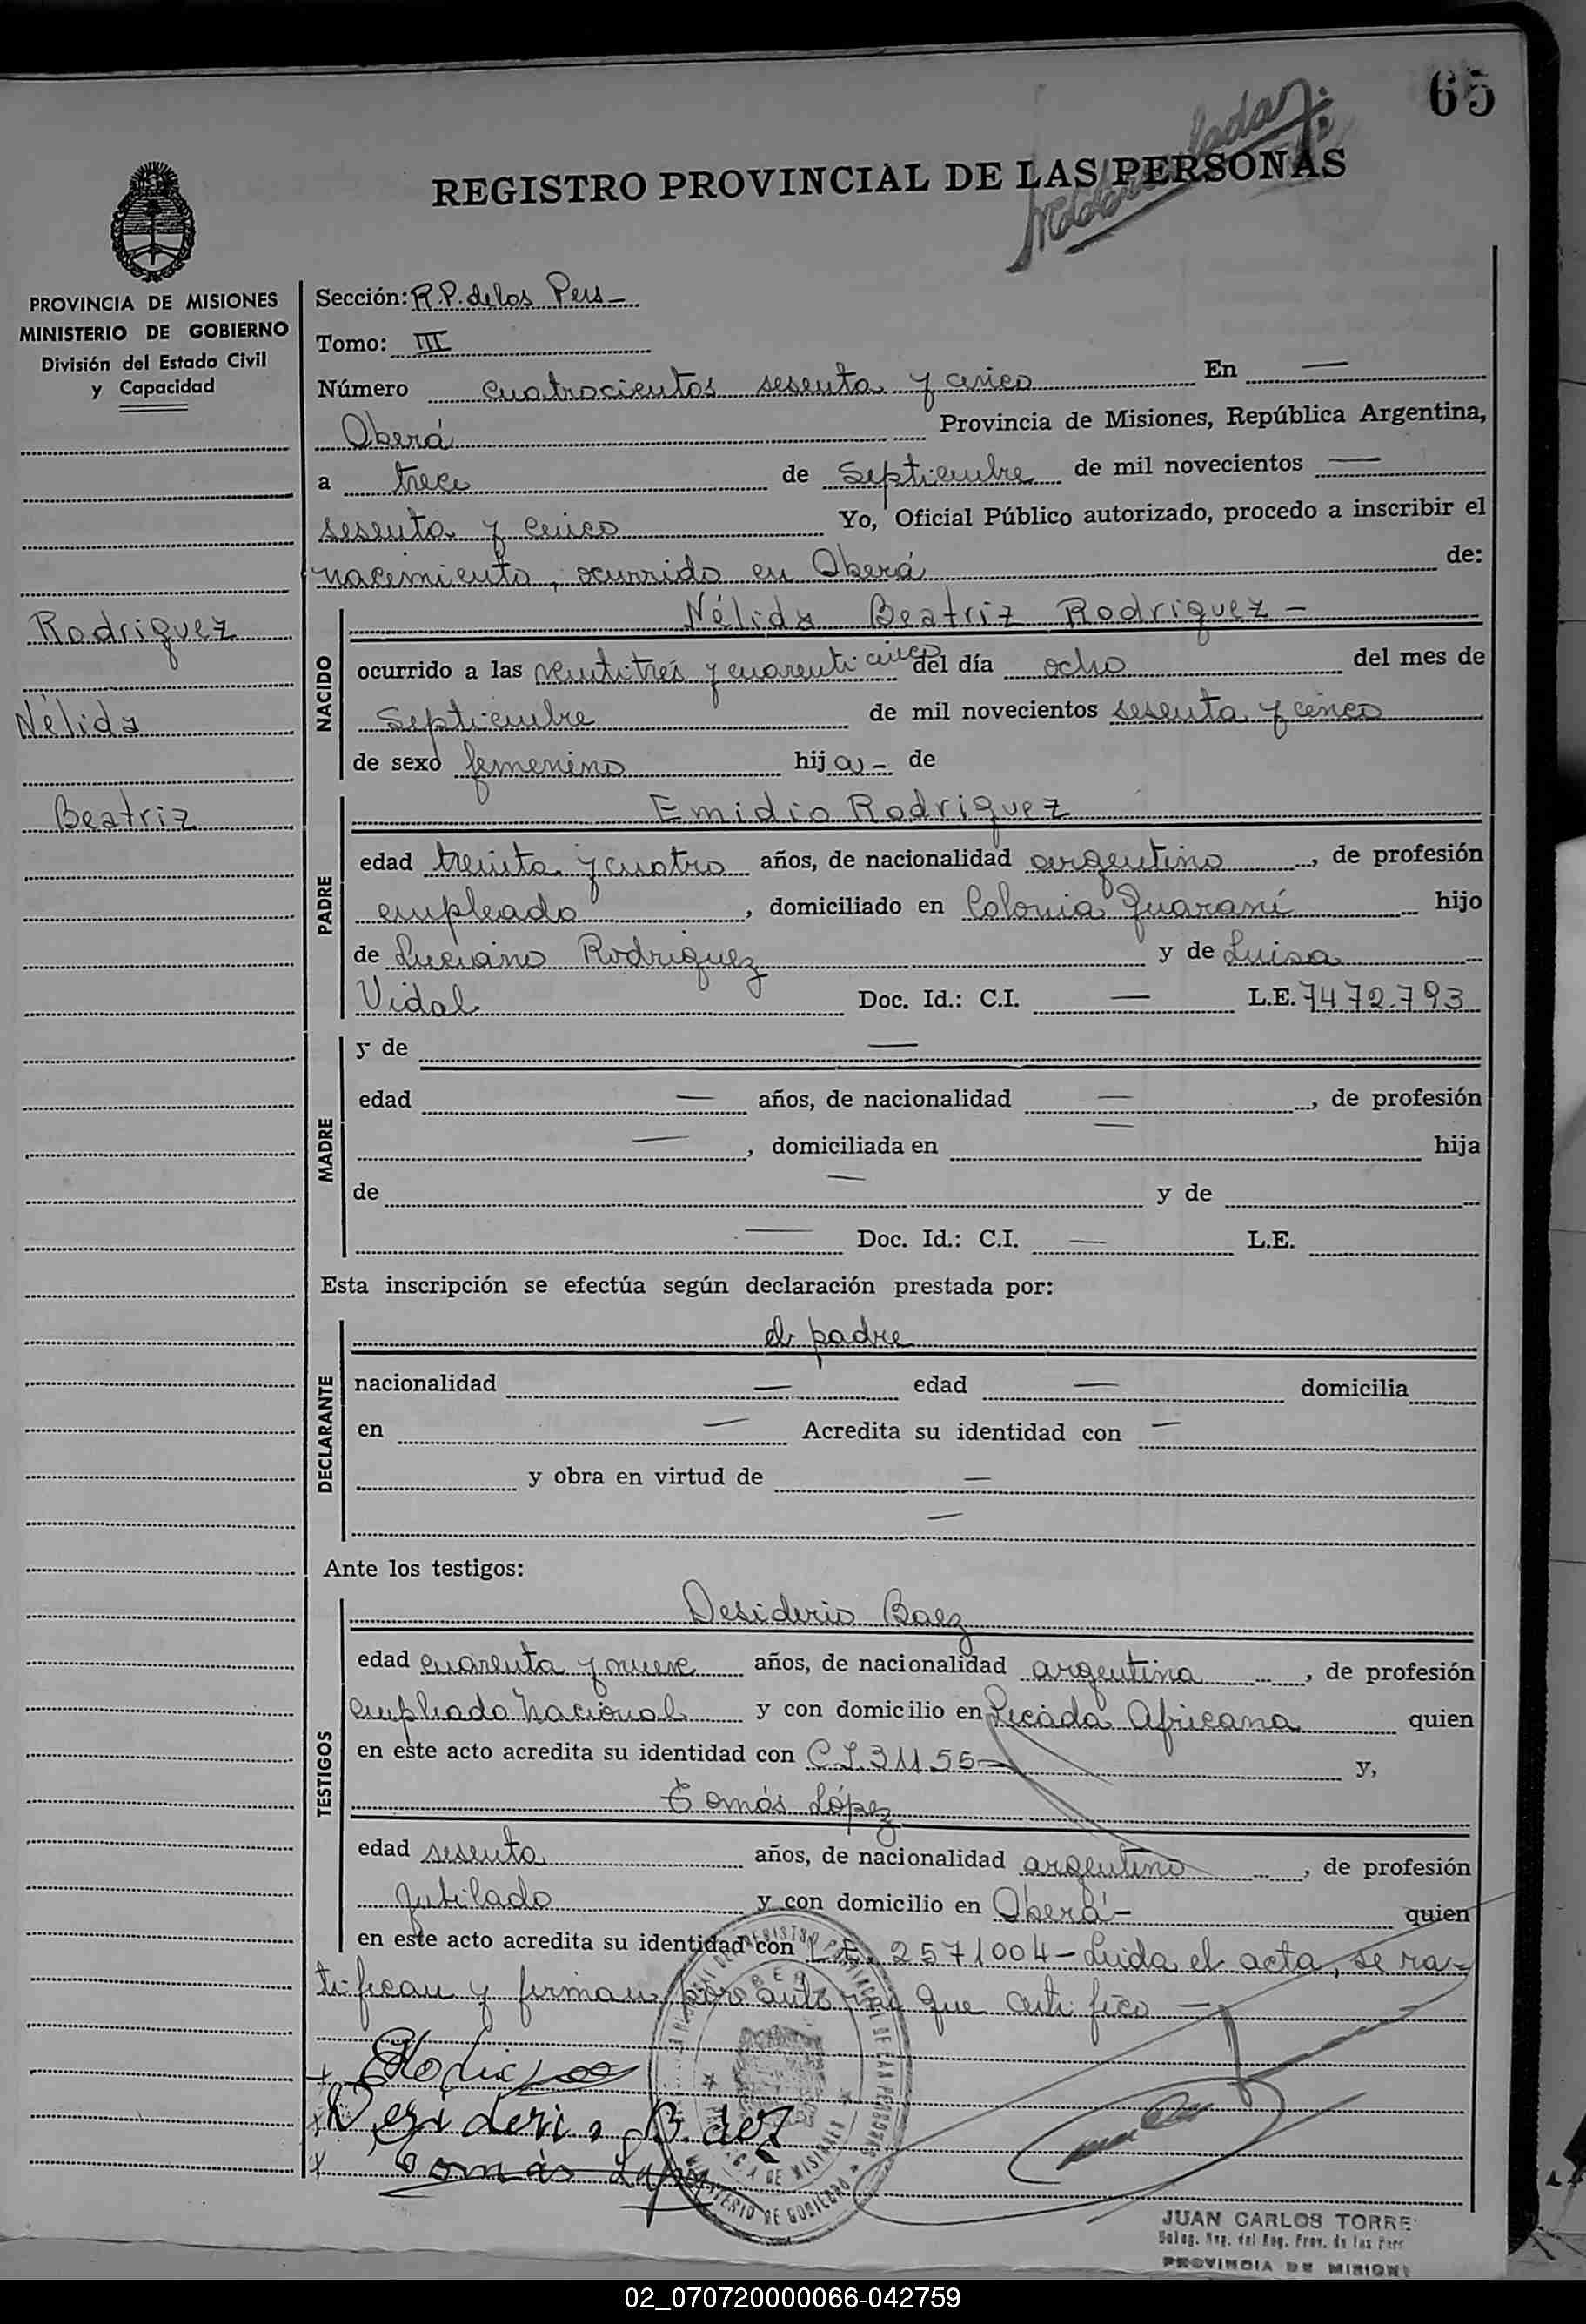 65
REGISTRO PROVINCIAL DE LAS PERSONAS
PROVINCIA DE MISIONES
MINISTERIO DE GOBIERNO
División del Estado Civil
y Capacidad
Rodriguez
Nélida
Beatriz
Sección: R.P. de los Pers -
Tomo: III
Número cuatrocientos sesenta y cinco En —
Oberá Provincia de Misiones, República Argentina,
a trece de Septiembre de mil novecientos —
sesenta y cinco Yo, Oficial Público autorizado, procedo a inscribir el
nacimiento, ocurrido en Oberá de:
NACIDO
Nélida Beatriz Rodriguez -
ocurrido a las veintitrés y cuarenti cinco del día ocho del mes de
Septiembre de mil novecientos sesenta y cinco
de sexo femenino hija - de
PADRE
Emidio Rodriguez
edad treinta y cuatro años, de nacionalidad argentino, de profesión
empleado, domiciliado en Colonia Guaraní hijo
de Luciano Rodriguez y de Luisa
Vidal Doc. Id.: C.I. — L.E. 7472.793
MADRE
y de —
edad — años, de nacionalidad —, de profesión
—, domiciliada en — hija
de — y de
— Doc. Id.: C.I. — L.E.
Esta inscripción se efectúa según declaración prestada por:
DECLARANTE
el padre
nacionalidad — edad — domicilia
en — Acredita su identidad con —
y obra en virtud de —
—
Ante los testigos:
TESTIGOS
Desiderio Baez
edad cuarenta y nueve años, de nacionalidad argentina, de profesión
empleado Nacional y con domicilio en Picada Africana quien
en este acto acredita su identidad con C.I. 31155 — y,
Tomás López
edad sesenta años, de nacionalidad argentino, de profesión
jubilado y con domicilio en Oberá - quien
en este acto acredita su identidad con L.E. 2571004 - Leida el acta, se ra-
tifican y firman por ante mi que certifico —
Desiderio Baez
Tomás Lopez
JUAN CARLOS TORRE
Deleg. Reg. del Reg. Prov. de las Pers
PROVINCIA DE MISION
02_070720000066-042759